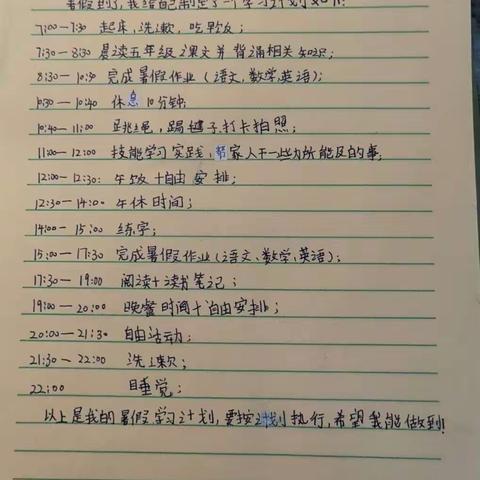 暑假到了,我给自己制定了一个学习计划如下:
7:00-7:30 起床,洗漱,吃早饭;
7:30-8:30 晨读五年级课文并背诵相关知识;
8:30-10:30 完成暑假作业(语文,数学,英语);
10:30-10:40 休息10分钟;
10:40-11:00 跳绳,踢毽子打卡拍照;
11:00-12:00 技能学习实践,帮家人干一些力所能及的事;
12:00-12:30: 午饭+自由安排;
12:30-14:00 午休时间;
14:00-15:00 练字;
15:00-17:30 完成暑假作业(语文、数学、英语);
17:30-19:00 阅读+读书笔记;
19:00-20:00 晚餐时间+自由安排;
20:00-21:30 自由活动;
21:30-22:00 洗漱;
22:00 睡觉;
以上是我的暑假学习计划,要按计划执行,希望我能做到!